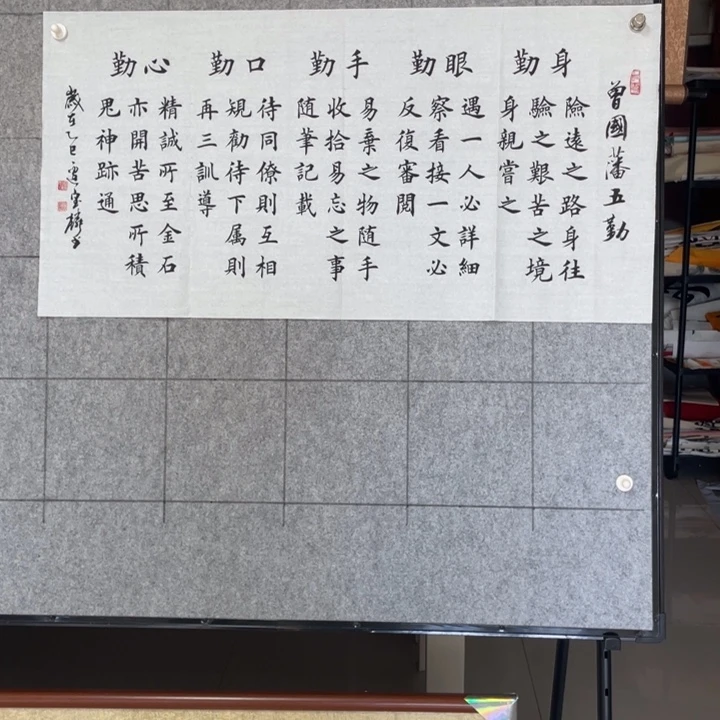 曾國藩五勤
身勤
險遠之路身往
驗之艱苦之境
身親嘗之
眼勤
遇一人必詳細
察看接一文必
反復審閱
手勤
易棄之物隨手
收拾易忘之事
隨筆記載
口勤
待同僚則互相
規勸待下属則
再三訓導
心勤
精誠所至金石
亦開苦思所積
鬼神跡通
歲在乙巳